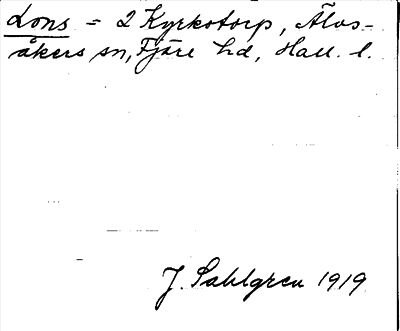 Lons = 2 Kyrkotorp, Älvs-
åkers sn, Fjäre hd, Hall. l.
J. Sahlgren 1919